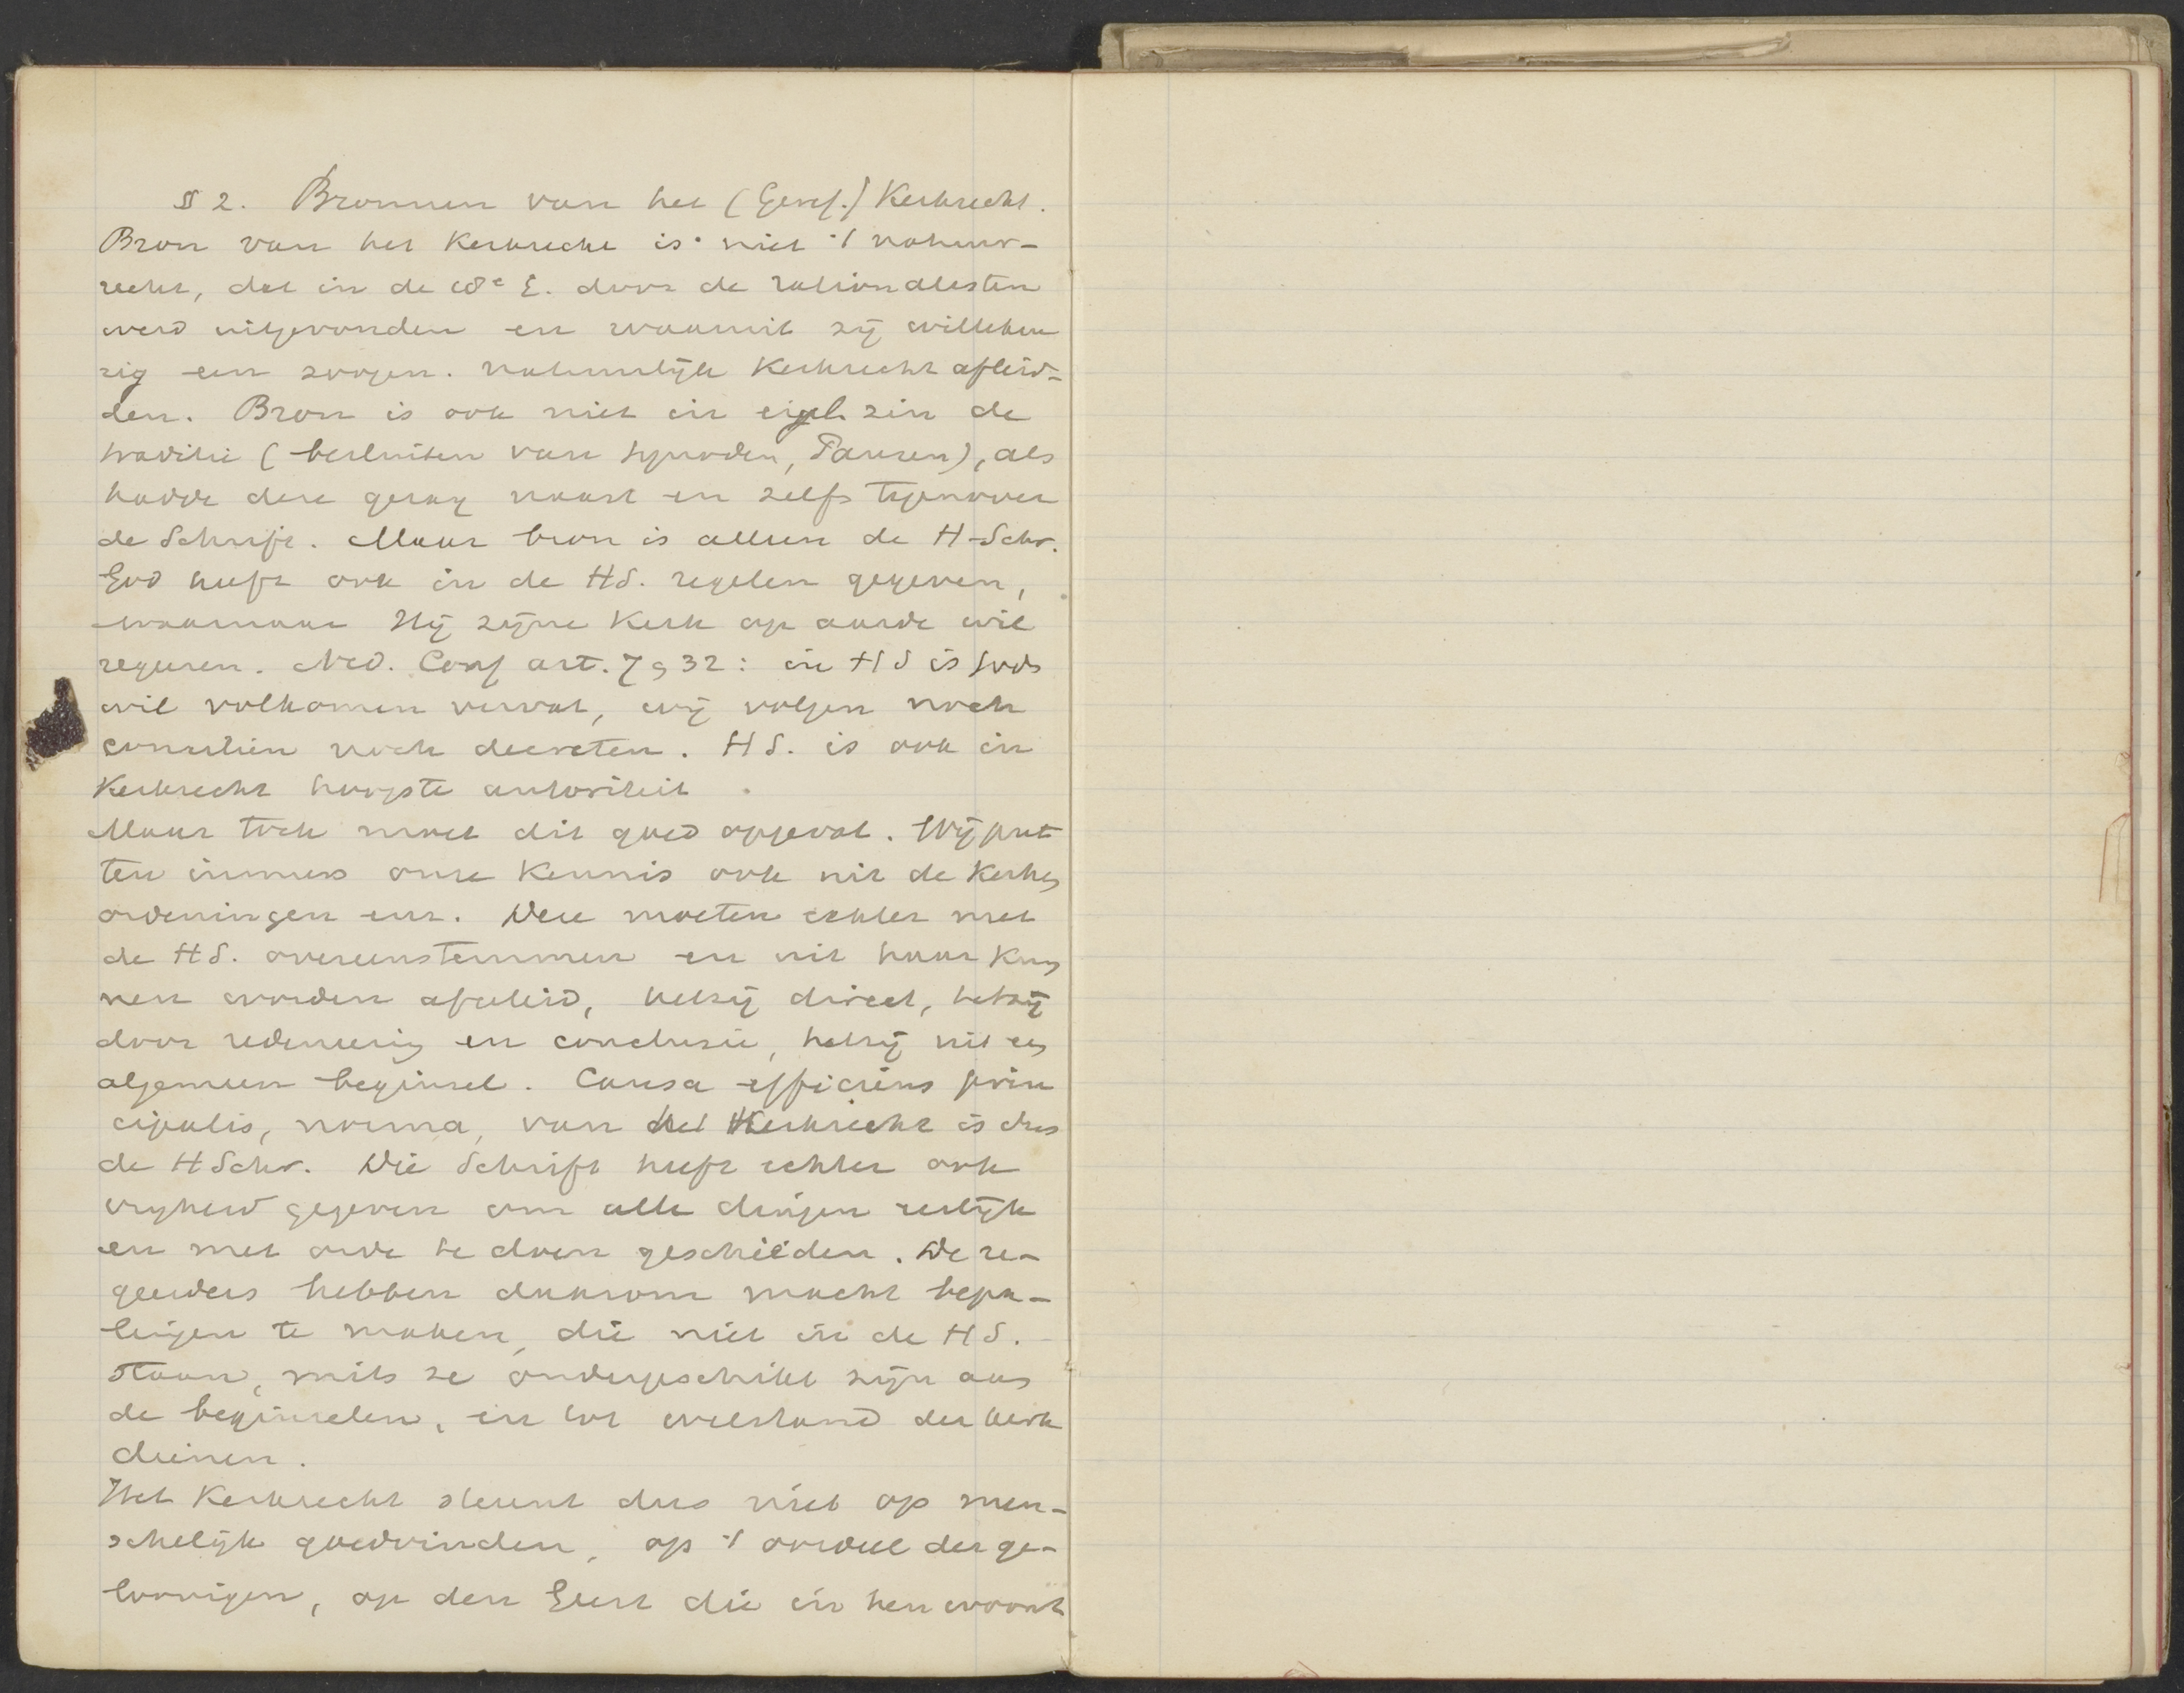 § 2. Bronnen van het (Geref.) Kerkrecht.
Bron van het Kerkrecht is niet 't natuur-
recht, dat in de 18e E. door de rationalisten
werd uitgevonden en waaruit zij willekeu
rig een zoogen. natuurlijk Kerkrecht afleid-
den. Bron is ook niet in eigel. zin de
traditie (besluiten van Synoden, Pausen), als
hadde deze gezag naast en zelfs tegenover
de Schrift. Maar bron is alleen de H-Schr.
God heeft ook in de HS. regelen gegeven,
waarnaar Hij zijne Kerk op aarde wil
regeeren. Ned. Conf art. 7, 32: in HS is Gods
wil volkomen vervat, wij volgen noch
conciliën noch decreten. HS. is ook in
Kerkrecht hoogste autoriteit.
Maar toch moet dit goed opgevat. Wij put
ten immers onze Kennis ook uit de Kerken
ordeningen enz. Deze moeten echter met
de HS. overeenstemmen en uit haar Kun
nen worden afgeleid, hetzij direct, hetzij
door redeneering en conclusie, hetzij uit een
algemeen beginsel. Causa efficiens prin
cipalis, norma, van het Kerkrecht is dus
de HSchr. Die Schrift heeft echter ook
vrijheid gegeven om alle dingen eerlijk
en met orde te doen geschieden. De re-
geerders hebben daarom macht bepa-
lingen te maken, die niet in de HS.
staan, mits ze ondergeschikt zijn aan
de beginselen, en tot welstand der kerk
dienen.
Het Kerkrecht steunt dus niet op men-
schelijk goedvinden, op 't oordeel der ge-
loovigen, op den Geest die in hen woont